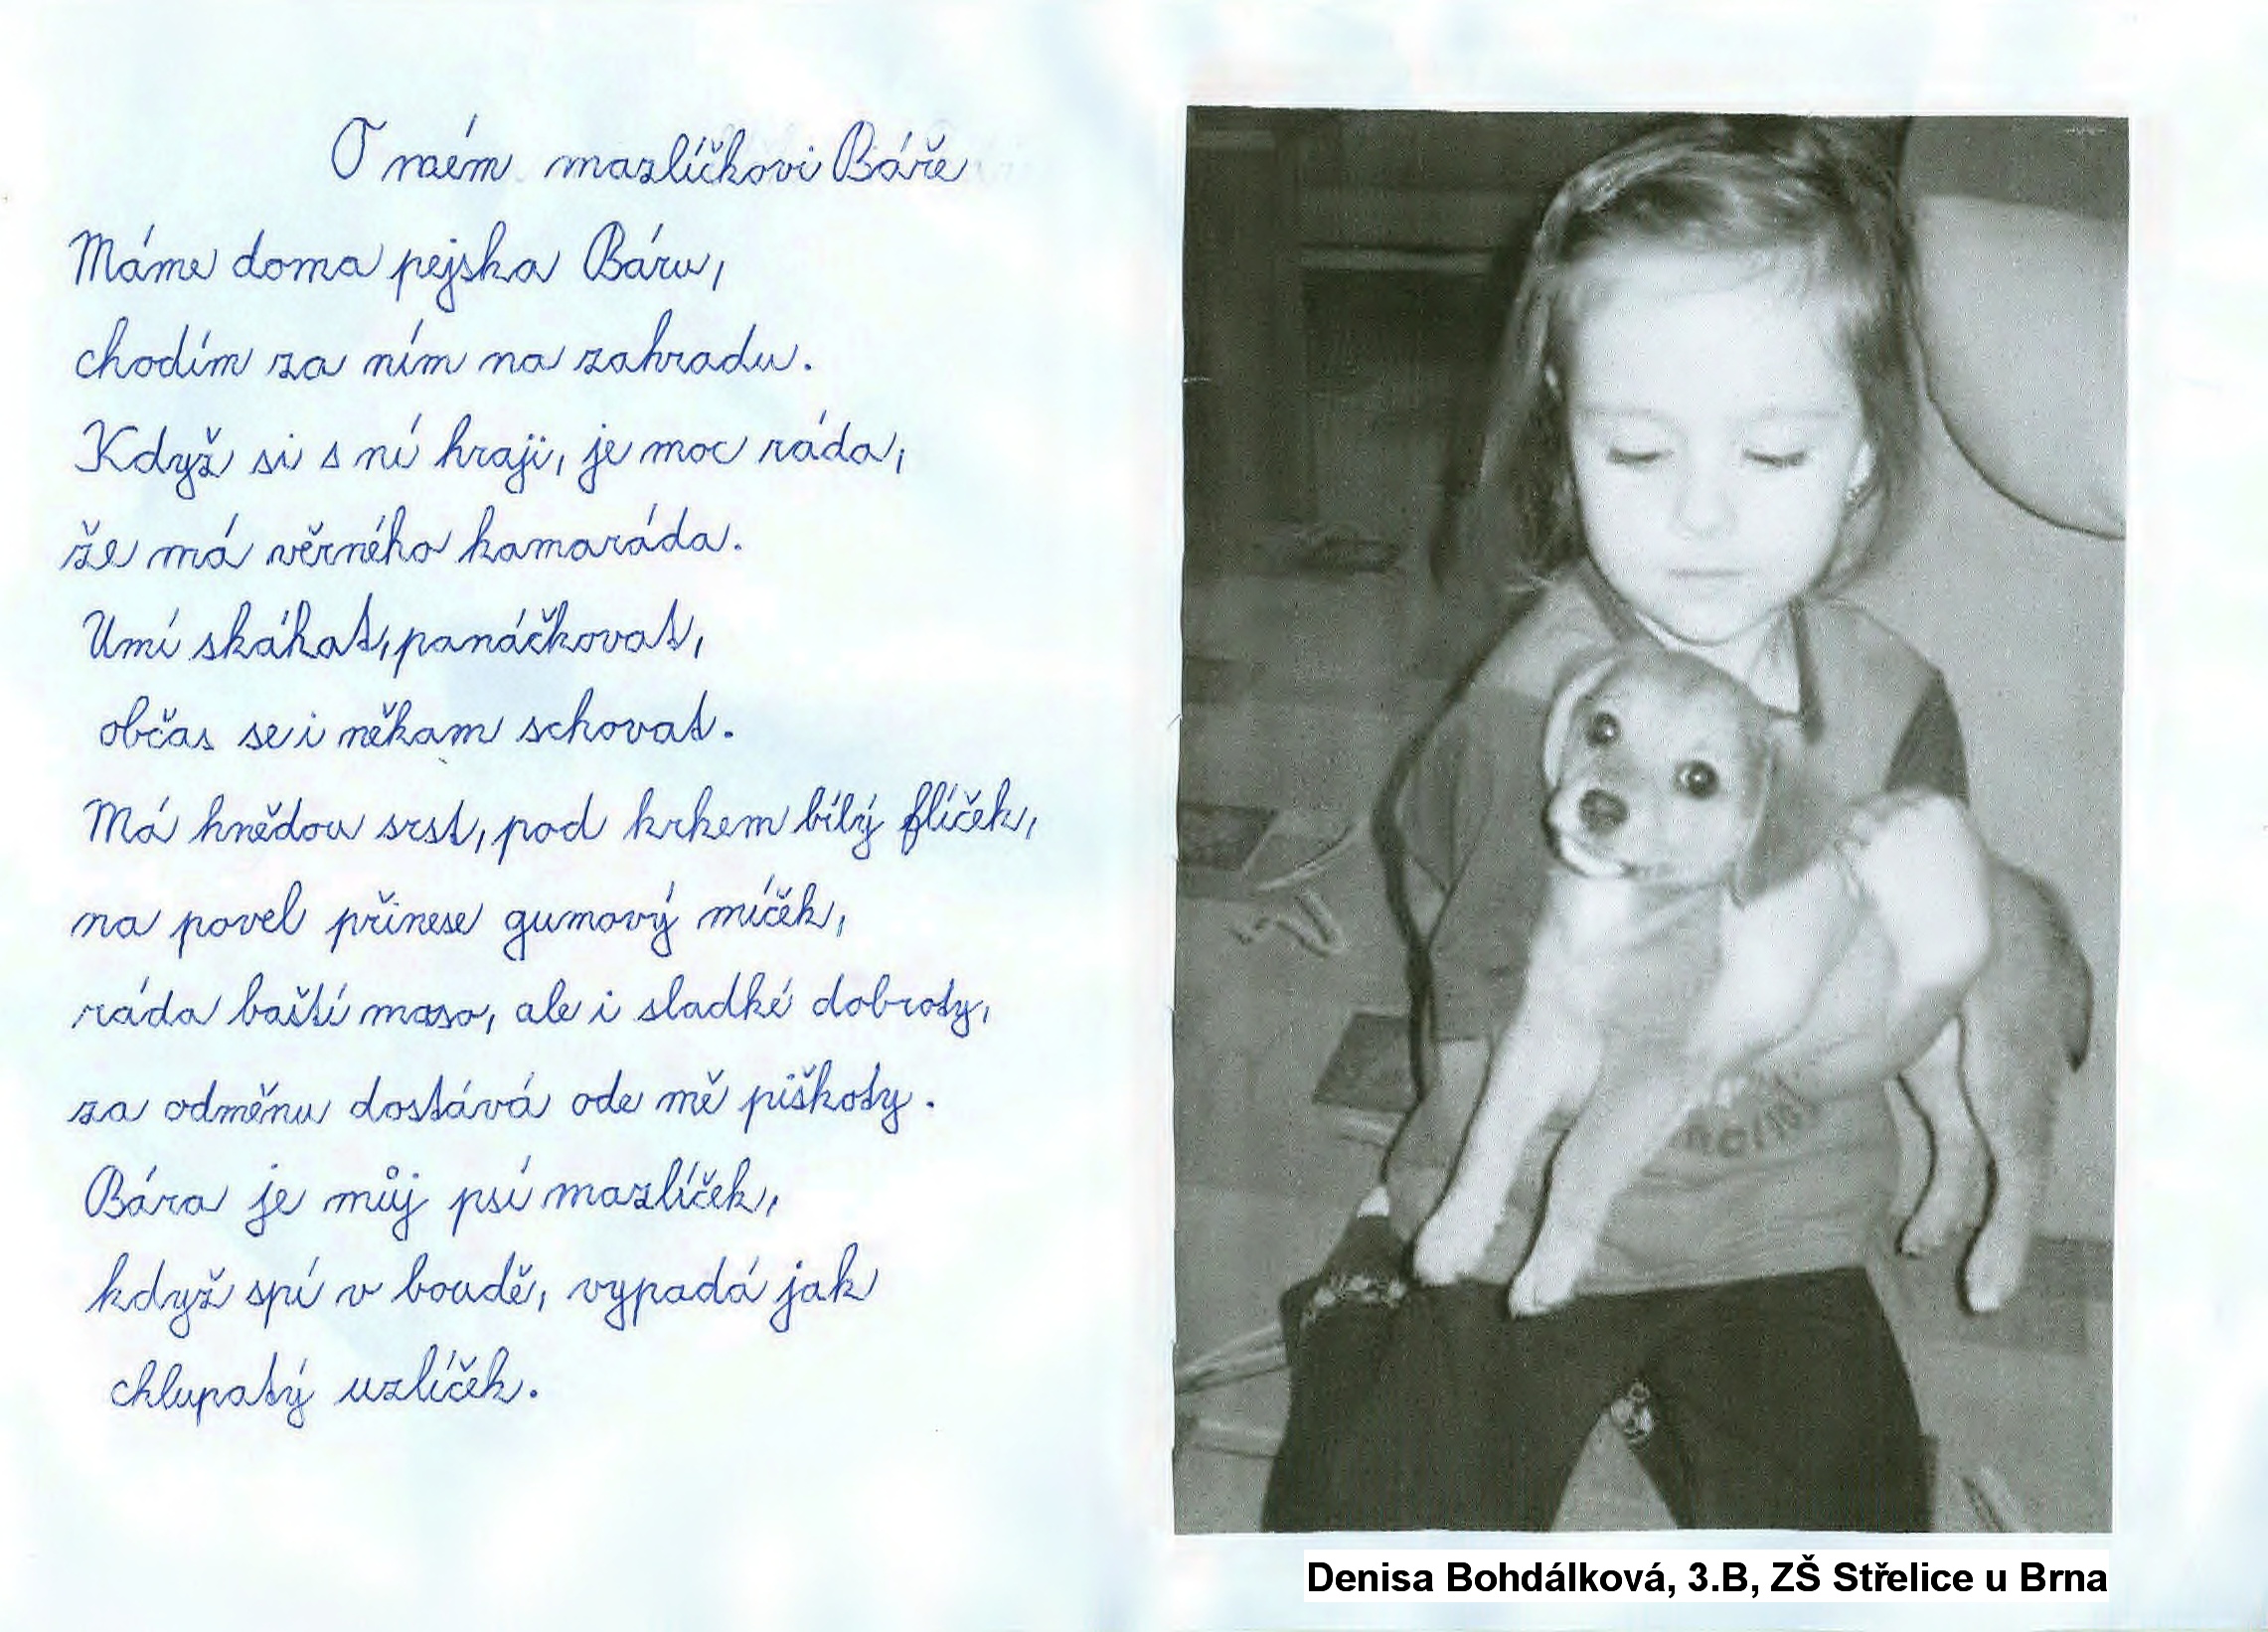 O mém mazlíčkovi Báře
Máme doma pejska Báru,
chodím za ním na zahradu.
Když si s ní hraji, je moc ráda,
že má věrného kamaráda.
Umí skákat, panáčkovat,
občas se i někam schovat.
Má hnědou srst, pod krkem bílý flíček,
na povel přinese gumový míček,
ráda baští maso, ale i sladké dobroty,
za odměnu dostává ode mě piškoty.
Bára je můj psí mazlíček,
když spí v boudě, vypadá jak
chlupatý uzlíček.
Denisa Bohdálková, 3.B, ZŠ Střelice u Brna